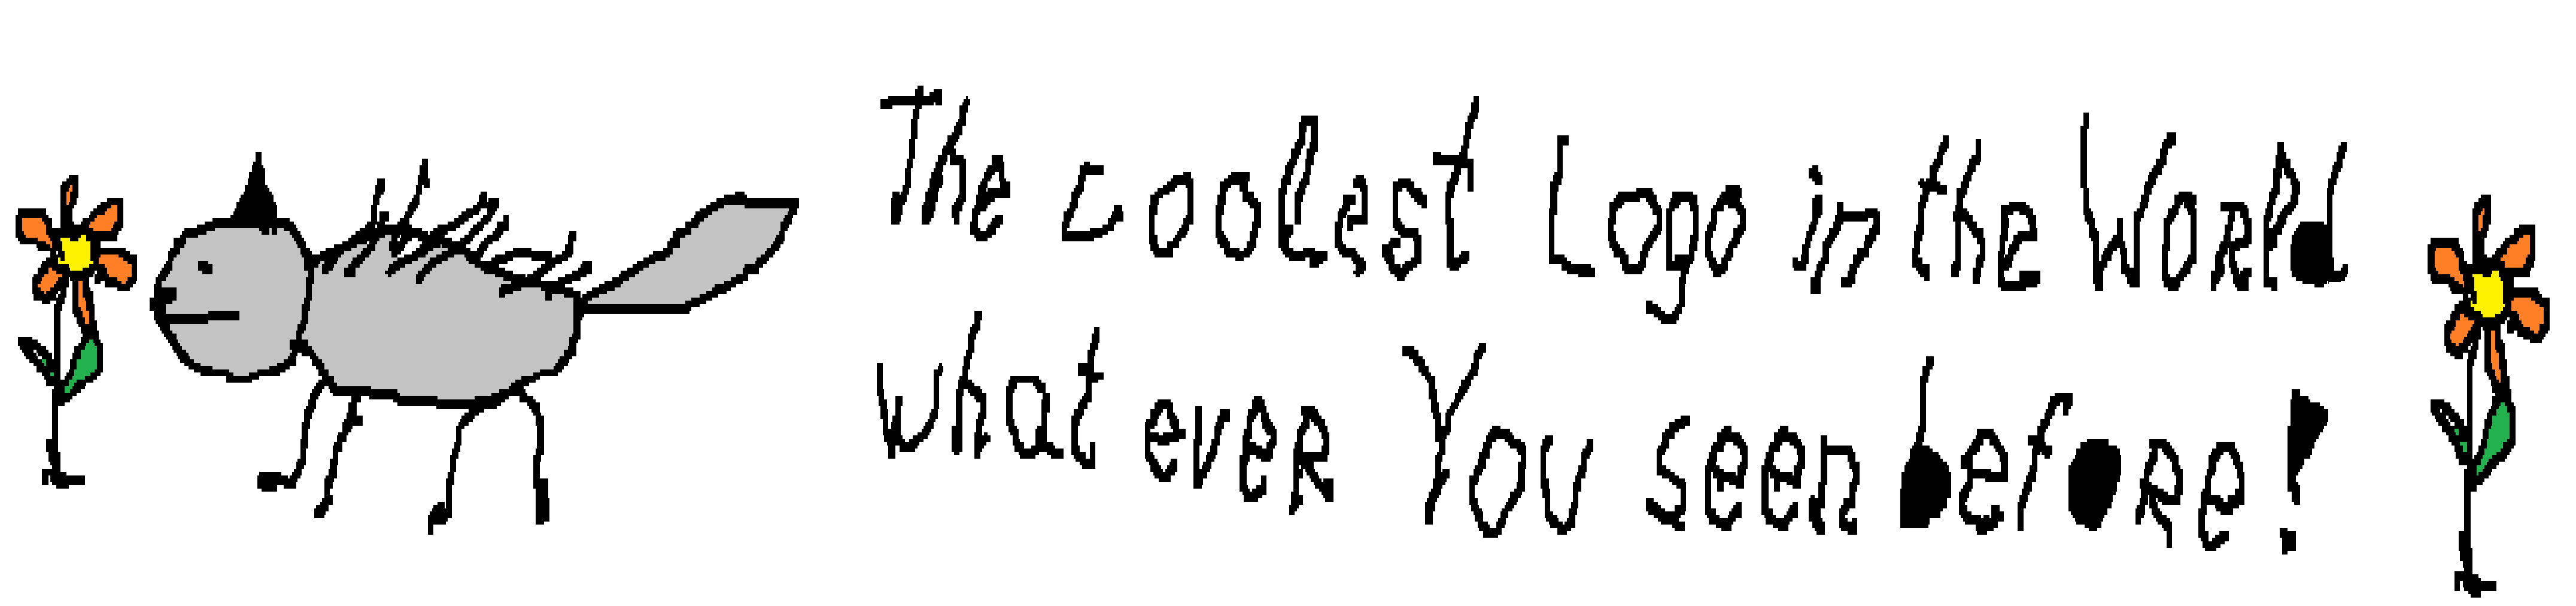 The coolest Logo in the World
what ever You seen before!